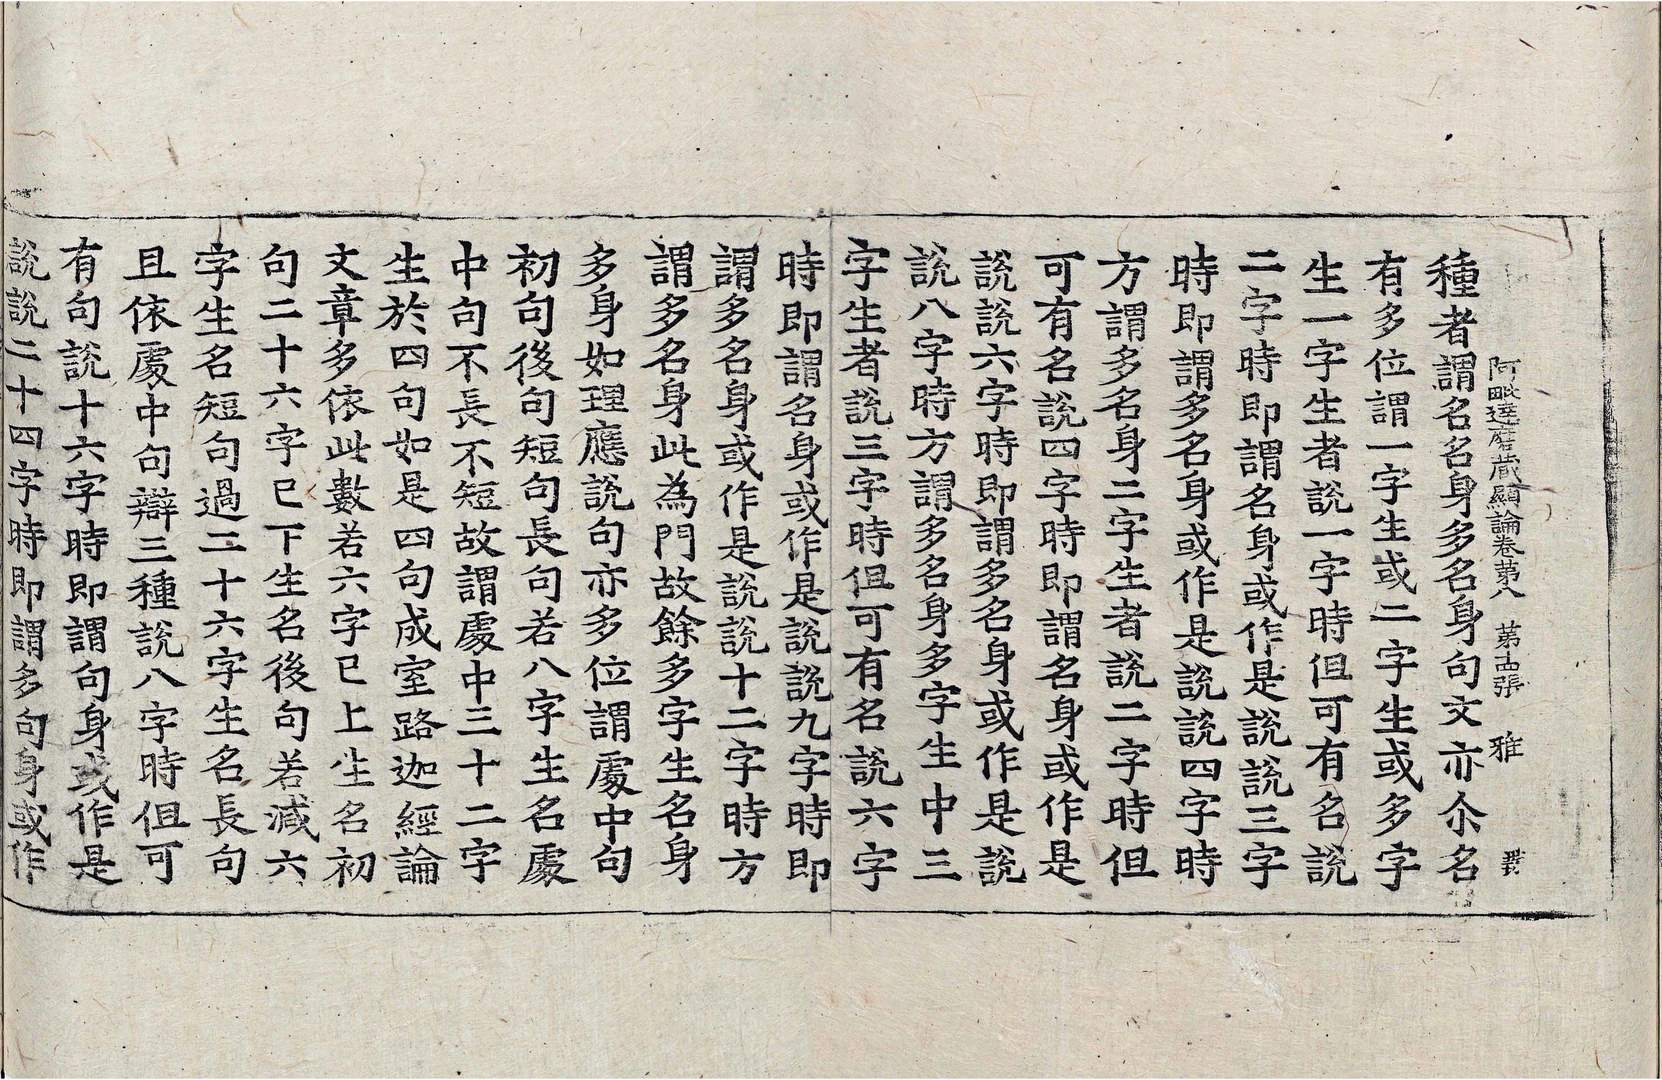 阿毗達磨藏顯論卷苐八 苐十四張 雅
種者謂名名身多名身句文亦尒名
有多位謂一字生或二字生或多字
生一字生者說一字時但可有名說
二字時即謂名身或作是說說三字
時即謂多名身或作是說說四字時
方謂多名身二字生者說二字時但
可有名說四字時即謂名身或作是
說說六字時即謂多名身或作是說
說八字時方謂多名身多字生中三
字生者說三字時但可有名說六字
時即謂名身或作是說說九字時即
謂多名身或作是說說十二字時方
謂多名身此為門故餘多字生名身
多身如理應說句亦多位謂處中句
初句後句短句長句若八字生名處
中句不長不短故謂處中三十二字
生於四句如是四句成室路迦經論
文章多依此數若六字已上生名初
句二十六字已下生名後句若減六
字生名短句過二十六字生名長句
且依處中句辯三種說八字時但可
有句說十六字時即謂句身或作是
說說二十四字時即謂多句身或作